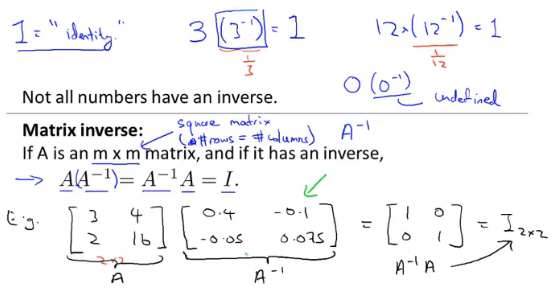 1 = "identity." 3 (3⁻¹) = 1 12 × (12⁻¹) = 1
1/3 1/12
0 (0⁻¹)
undefined
Not all numbers have an inverse.
Matrix inverse: square matrix
(#rows = #columns) A⁻¹
If A is an m x m matrix, and if it has an inverse,
→ A(A⁻¹) = A⁻¹A = I.
E.g. [3 4; 2 16] [0.4 -0.1; -0.05 0.075] = [1 0; 0 1] = I 2×2
2×2
A A⁻¹ A⁻¹A